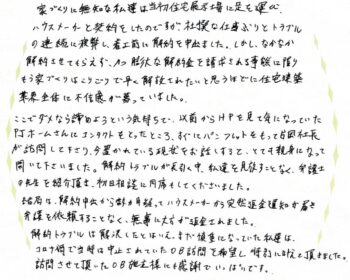 家づくりに無知な私達は当初住宅展示場に足を運び、
ハウスメーカーと契約をしたのですが、杜撰な仕事ぶりとトラブル
の連続に疲弊し、着工前に解約を申出ました。しかし、なかなか
解約させてもらえず、又、膨大な解約金を請求される事態に陥り
もう家づくりはこりごりで早く解放されたいと思うほどに住宅建築
業界全体に不信感が募っていました。
ここでダメなら諦めようという気持ちで、以前からHPを見て気になっていた
PJホームさんにコンタクトをとったところ、すぐにパンフレットをもって吉田社長
が訪問して下さり、今置かれている現状をお話しすると、とても親身になって
聞いて下さいました。解約トラブルが長引く中、私達を見放すことなく、弁護士
の先生を紹介頂き、初回相談に同席もしてくださいました。
結局は、解約申出から数か月経ってハウスメーカーから突然返金通知が届き
弁護を依頼することなく、無事に大方が返金されました。
解約トラブルは解決したとはいえ、まだ慎重になっていた私達は、
コロナ禍で当時は中止されていたOB訪問を希望し特別に訪ねて頂きました。
訪問させて頂いたOB施主様にも感謝でいっぱいです。